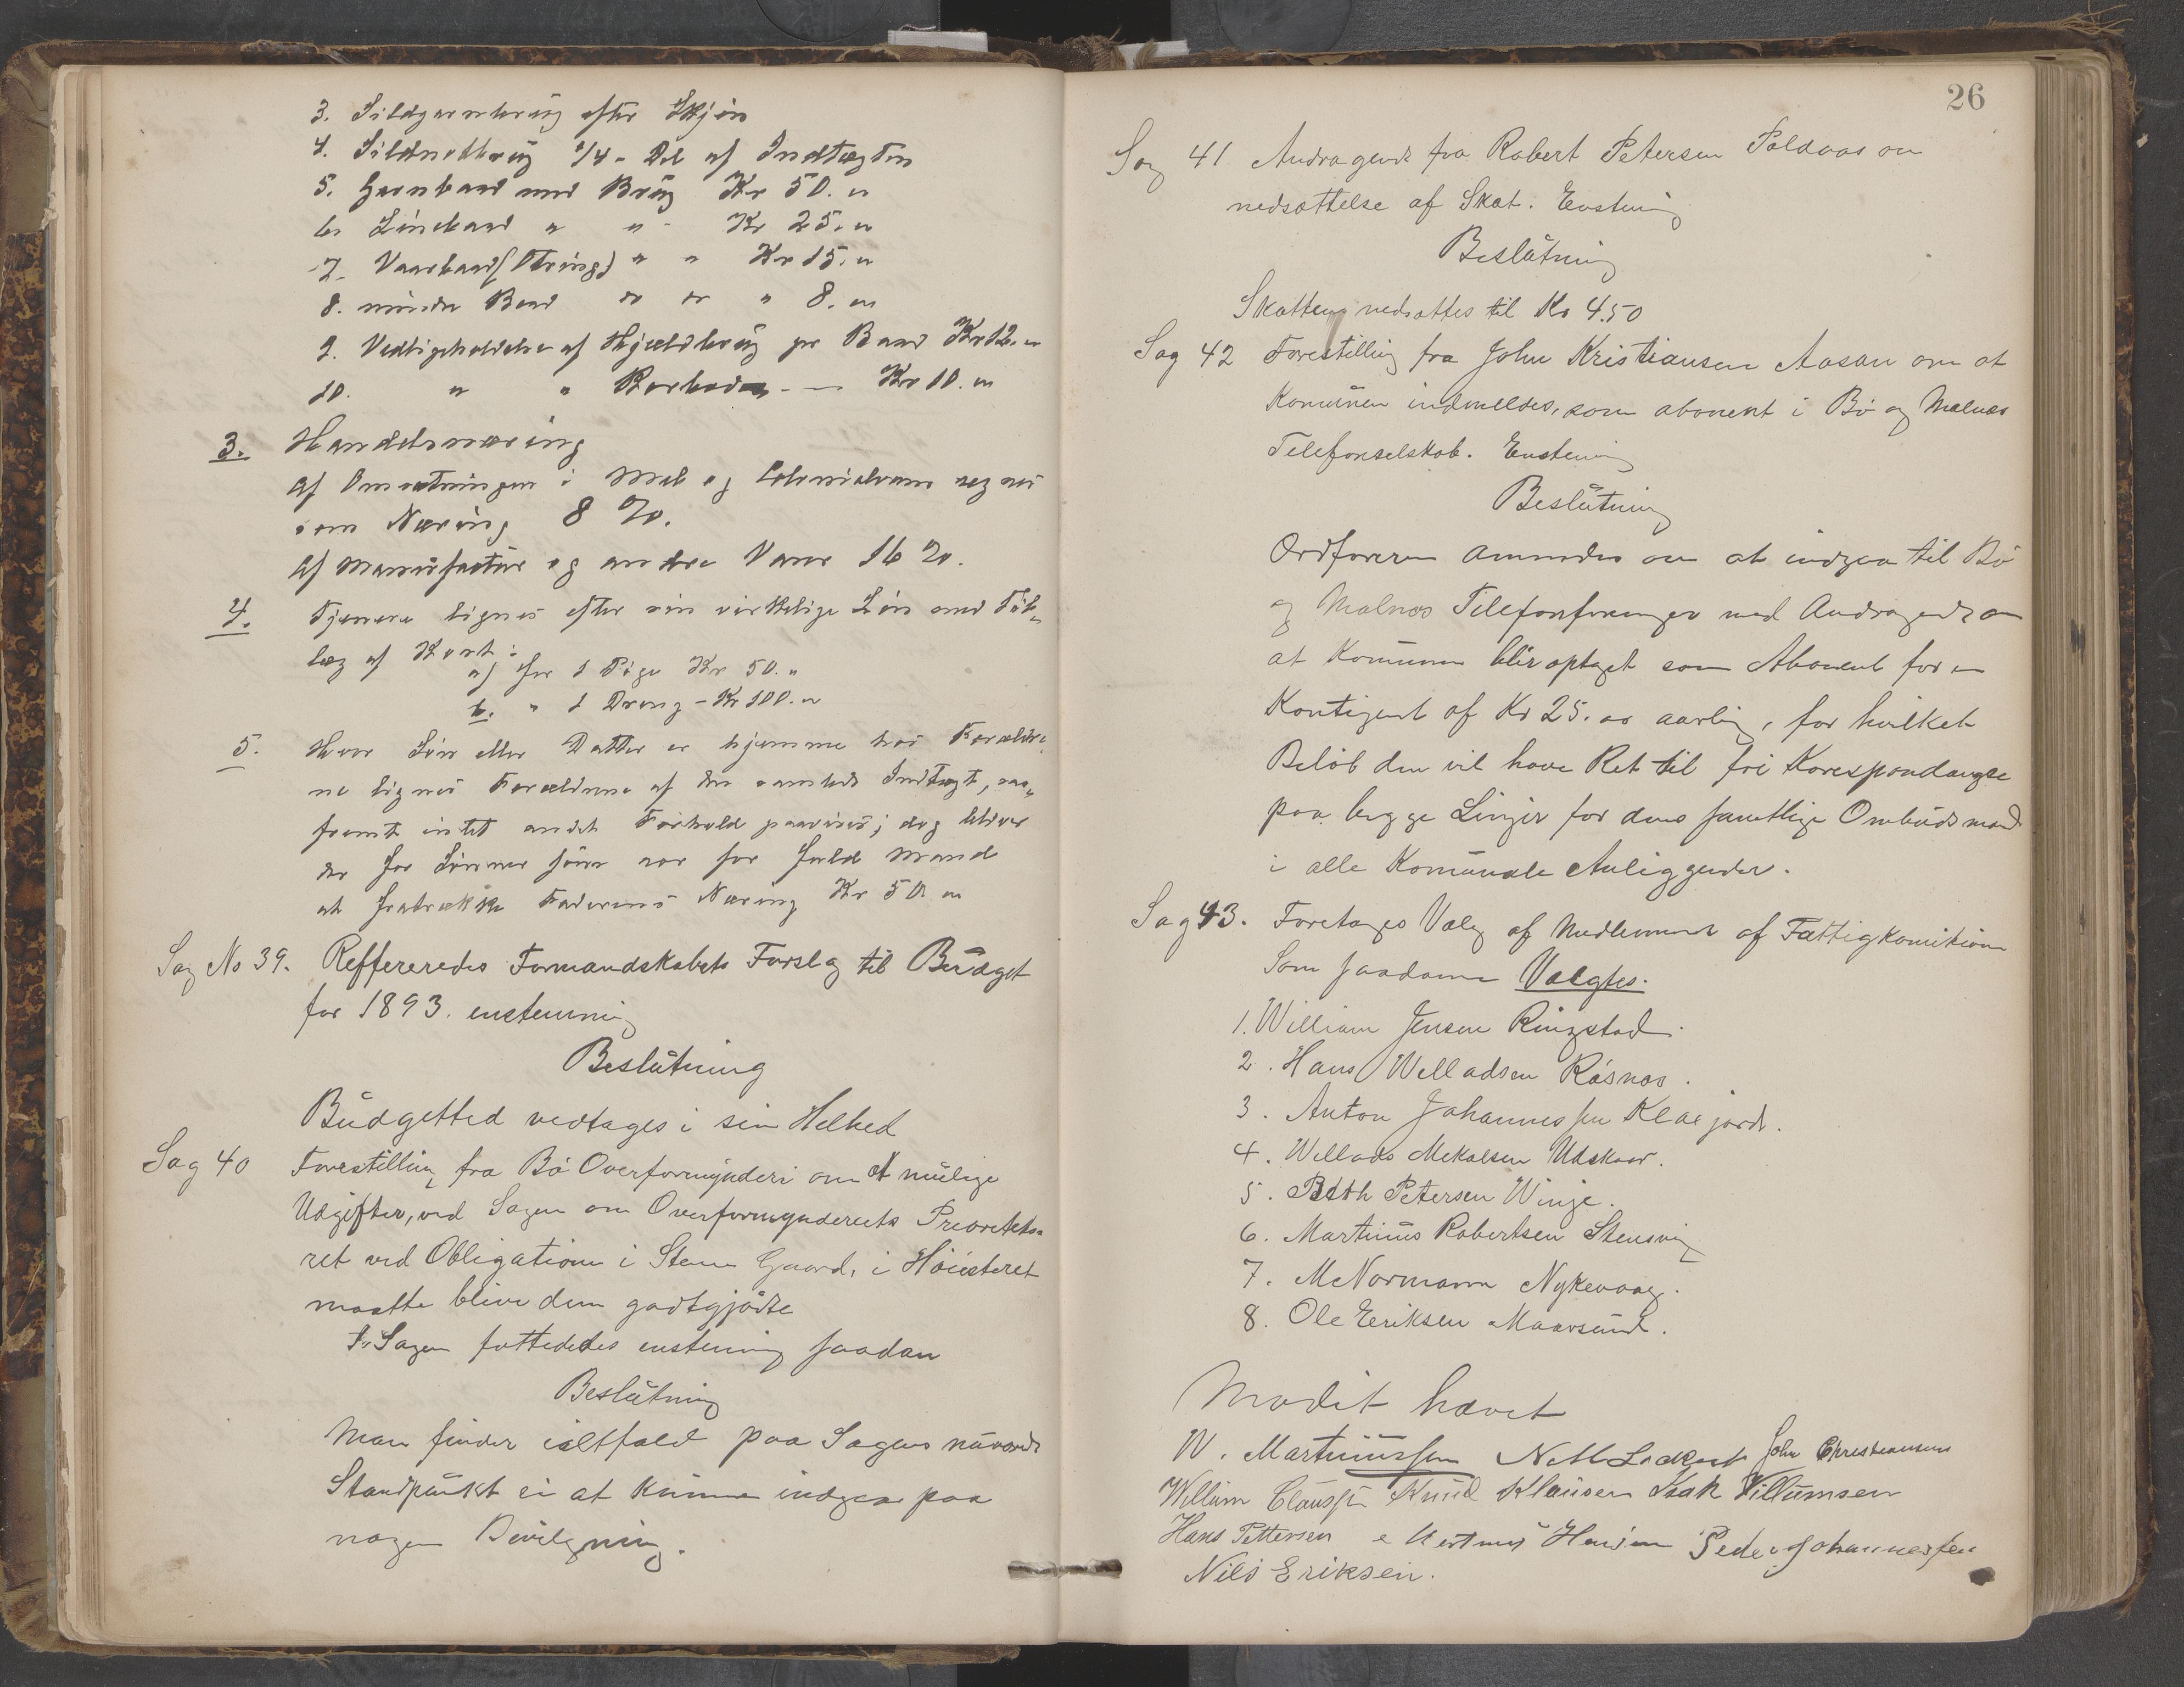 3. Sildgarnbrüg efter Skjøn
4. Sildnotbrüg 1/4 - Del af Indtægten
5. Garnbaad med Brüg Kr 50. "
6. Linebaad " " Kr 25. "
7. Vaarbaad (Otring) " " Kr 15. "
8. mindre Baad " " " 8. "
9. Vedligeholdelse af Hjeldbrüg pr Baad Kr 12. "
10. " " Rorboder - — Kr 10. "
3. Handelsnæring
af Omsætningen i Mel og Colonialvarer regnes
som Næring 8 %.
af Manüfactür og andre Varer 16 %.
4. Tjenere lignes efter sin virkelige Løn med Til-
læg af Kost:
a) for 1 Pige Kr 50. "
b. " 1 Dreng - Kr 100. "
5. Hvor Søn eller Datter er hjemme hos Forældre
ne lignes Forældrene af den samlede Indtægt, saa-
fremt intet andet Forhold paavises; dog bliver
der for Sønner som ror for fuld Mand
at fratrække Faderens Næring Kr 50. "
Sag No 39. Reffereredes Formandskabets Forslag til Büdget
for 1893. enstemmig
Beslütning
Büdgetted vedtages i sin Helhed
Sag 40 Forestilling fra Bø Overformynderi om at mülige
Udgifter, ved Sagen om Overformynderiets Prioritets-
ret ved Obligation i Steine Gaard, i Høiesteret
maatte blive dem godtgjørte
I Sagen fattededes enstemig saadan
Beslütning
Man finder ialtfald paa Sagens nüværende
Standpünkt ei at künne indgaa paa
nogen Bevilgning.
26
Sag 41 Andragende fra Robert Petersen Poldaas om
nedsættelse af Skat. Enstemig
Beslütning
Skatten nedsættes til Kr 4.50
Sag 42 Forestilling fra John Kristiansen Aasan om at
Komünen indmeldes, som abonent i Bø og Malnæs
Telefonselskab. Enstemig
Beslütning
Ordføreren anmodes om at indgaa til Bø
og Malnæs Telefonforeninger med Andragende om
at Komünen blir optaget som Abonent for en
Kontigent af Kr 25.00 aarlig, for hvilket
Beløb den vil have Ret til fri Korespondangse
paa begge Linjer for dens samtlige Ombüdsmænd
i alle Komünale Anliggender.
Sag 43. Foretages Valg af Medlemmer af Fattigkomision
Som saadanne Valgtes.
1. William Jensen Ringstad.
2. Hans Welladsen Røsnæs.
3. Anton Johannessen Klaxjord.
4. Wellads Mekalsen Udskaar.
5. Peth Petersen Winje.
6. Martinüs Robertsen Stensvig
7. M Normann Nykevaag.
8. Ole Eeriksen Maarsünd.
Mødit hævet
W. Martinüssen N M Lockert John Christiansen
Willum Claussen Knüd Klaüsen Isak Villümsen
Hans Pettersen Hartvig Hansen Peder Johannessen
Nils Eriksen.